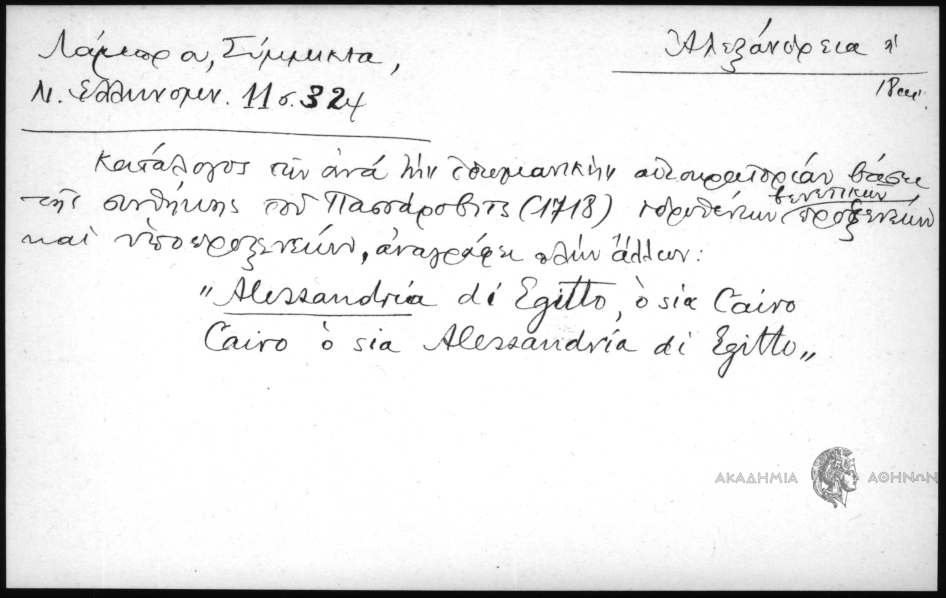 Λάμπρου, Σύμμικτα,
Ν. Ελληνομν. 11 σ. 324
Ἀλεξάνδρεια ἡ
18 αι.
Κατάλογος τῶν ἀνά τὴν ὀθωμανικὴν αὐτοκρατορίαν βάσει
βενετικῶν
τῆς συνθήκης τοῦ Πασσάροβιτς (1718) ἱδρυθέντων προξενειῶν
καὶ ὑποπροξενειῶν, ἀναγράφει πλὴν ἄλλων:
"Alessandria di Egitto, ò sia Cairo
Cairo ò sia Alessandria di Egitto"
ΑΚΑΔΗΜΙΑ ΑΘΗΝΩΝ